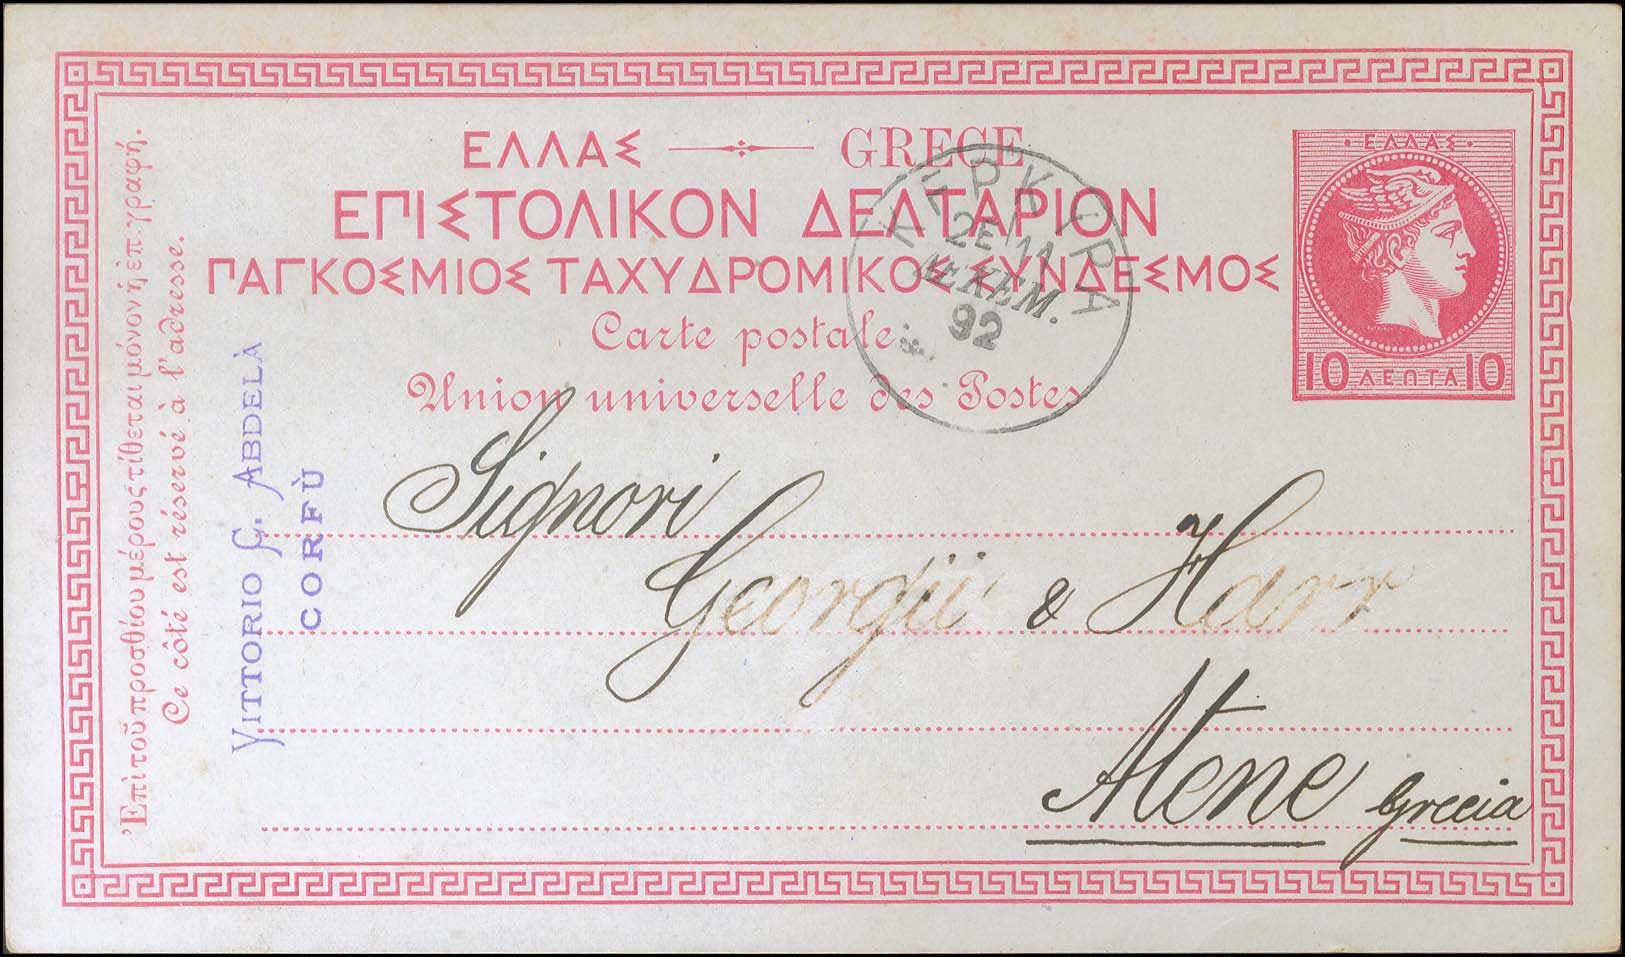 ΕΛΛΑΣ GRECE
ΕΠΙΣΤΟΛΙΚΟΝ ΔΕΛΤΑΡΙΟΝ
ΠΑΓΚΟΣΜΙΟΣ ΤΑΧΥΔΡΟΜΙΚΟΣ ΣΥΝΔΕΣΜΟΣ
Carte postale
Union universelle des Postes
·ΕΛΛΑΣ·
10 ΛΕΠΤΑ 10
ΚΕΡΚΥΡΑ
11
ΔΕΚΕΜ.
92
Ἐπὶ τοῦ προσθίου μέρους τίθεται μόνον ἡ ἐπιγραφή.
Ce côté est réservé à l'adresse.
VITTORIO G. ABDELÀ
CORFÙ
Signori
Georgii & Harr
Atene Grecia